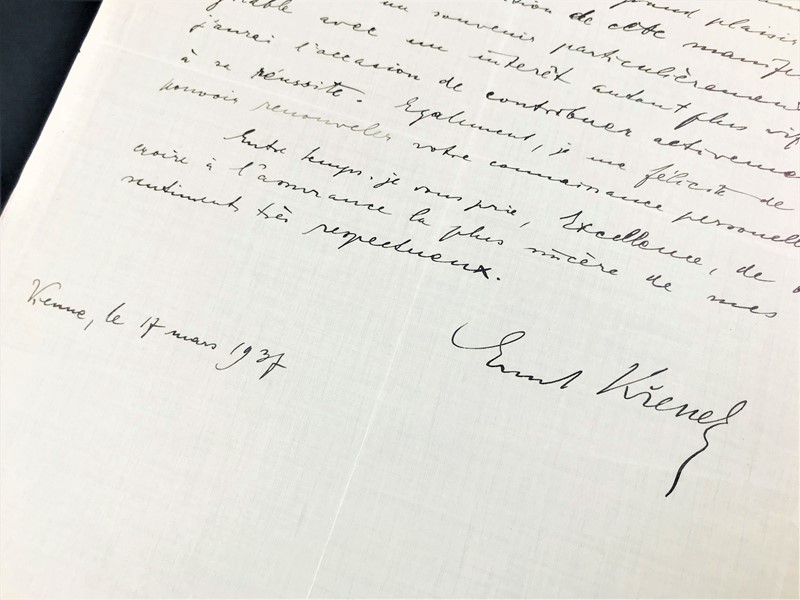 grand plaisir
un souvenir particulièrement
avec un intérêt autant plus vif
j'aurai l'occasion de contribuer activeme
à sa réussite. Egalement, je me félicite de
pouvoir renouveler votre connaissance personelle
Entre temps, je vous prie, Excellence, de
croire à l'assurance la plus sincère de mes
sentiments très respectueux.
Vienne, le 17 mars 1937
Ernst Křenek